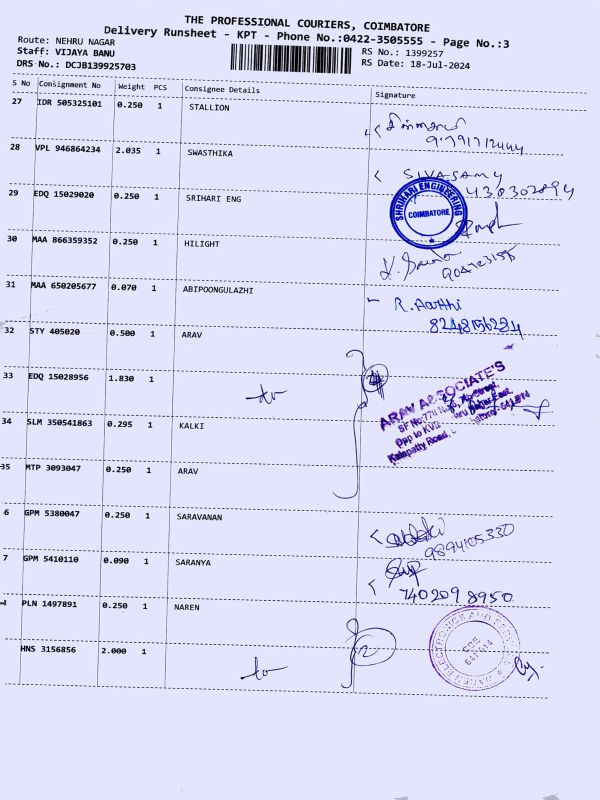 THE PROFESSIONAL COURIERS, COIMBATORE
Delivery Runsheet - KPT - Phone No.:0422-3505555 - Page No.:3
Route: NEHRU NAGAR
Staff: VIJAYA BANU
DRS No.: DCJB139925703
RS No.: 1399257
RS Date: 18-Jul-2024
S No Consignment No Weight PCS Consignee Details Signature
27 IDR 505325101 0.250 1 STALLION
9791712444
28 VPL 946864234 2.035 1 SWASTHIKA
SIVASAMY
29 EDQ 15029020 0.250 1 SRIHARI ENG
SHRIHARI ENGINEERING
COIMBATORE
30 MAA 866359352 0.250 1 HILIGHT
31 MAA 650205677 0.070 1 ABIPOONGULAZHI
R. Aarthi
32 STY 405020 0.500 1 ARAV
33 EDQ 15028956 1.830 1
ARAV ASSOCIATE'S
Kalapatty Road,
34 SLM 350541863 0.295 1 KALKI
35 MTP 3093047 0.250 1 ARAV
6 GPM 5380047 0.250 1 SARAVANAN
9894105330
7 GPM 5410110 0.090 1 SARANYA
740209 8950
PLN 1497891 0.250 1 NAREN
HNS 3156856 2.000 1